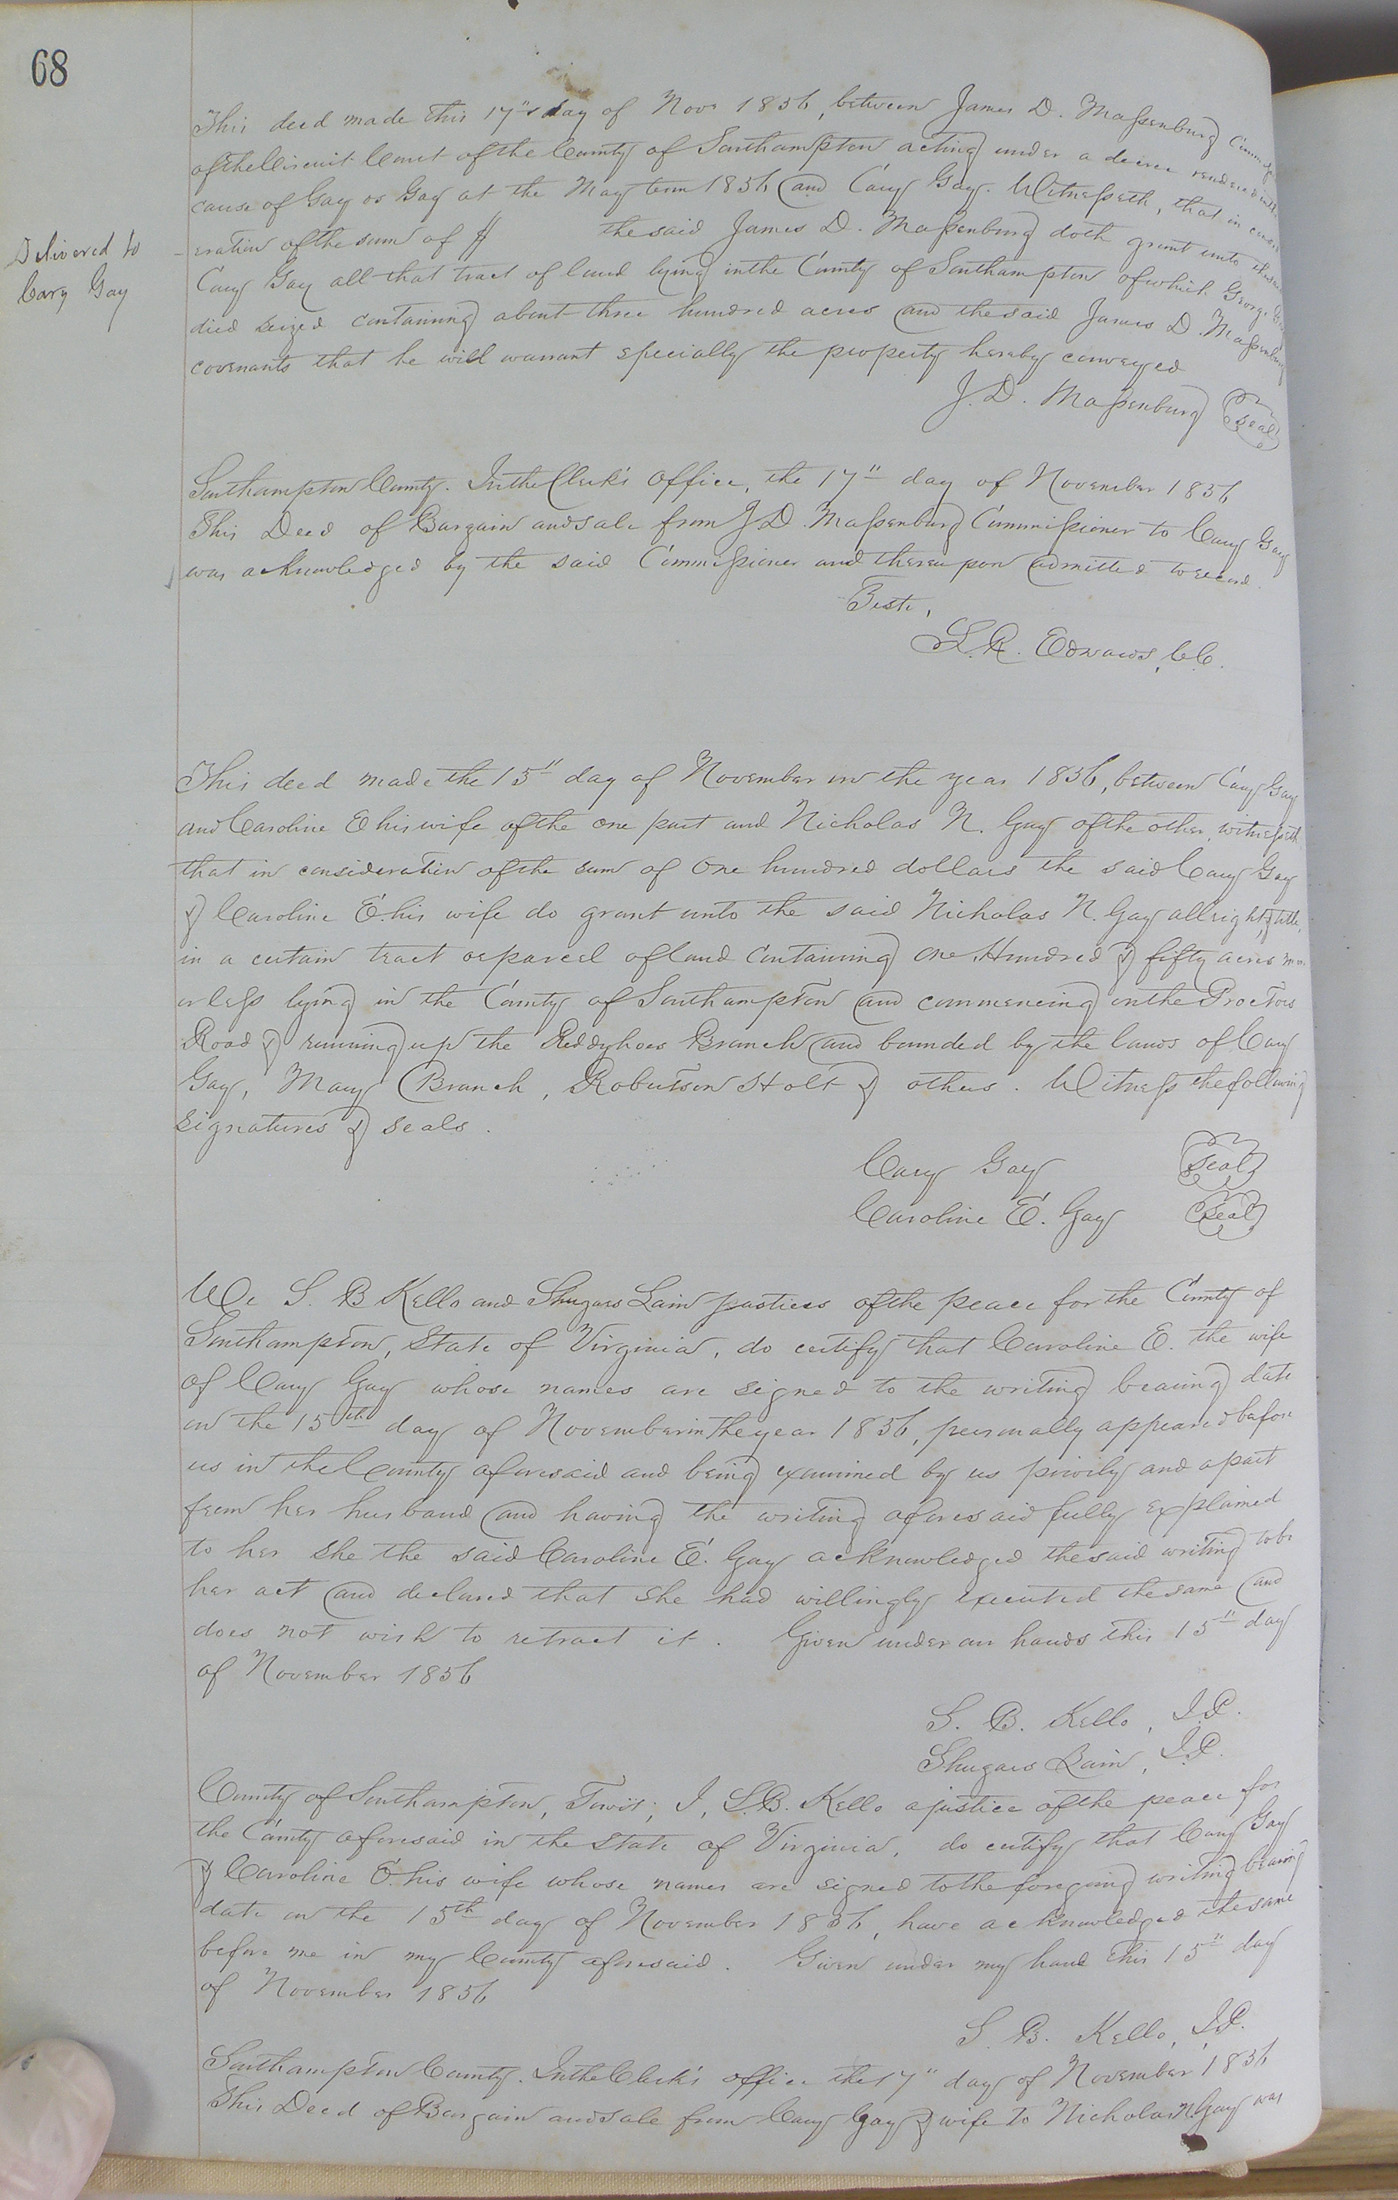 68
This deed made this 17" day of Nov 1856, between James D. Massenburg
of the Circuit Court of the County of Southampton acting under a decree rendered in the
cause of Gay vs Gay at the May term 1856 and Cary Gay. Witnesseth, that in consid
eration of the sum of $ the said James D. Massenburg doth grant unto the said
Delivered to
Cary Gay
Cary Gay all that tract of land lying in the County of Southampton of which George
died seized containing about three hundred acres and the said James D. Massenburg
covenants that he will warrant specially the property hereby conveyed
J. D. Massenburg Seal
Southampton County. In the Clerk's Office, the 17" day of November 1856
This Deed of Bargain and sale from J D. Massenburg Commissioner to Cary Gay
was acknowledged by the said Commissioner and thereupon admitted to record.
Teste,
L. R. Edwards, C.C.
This deed made the 15" day of November in the year 1856, between Cary Gay
and Caroline E his wife of the one part and Nicholas N. Gay of the other, witnesseth
that in consideration of the sum of One hundred dollars the said Cary Gay
& Caroline E. his wife do grant unto the said Nicholas N. Gay all right, & title,
in a certain tract or parcel of land containing One Hundred & fifty acres
or less lying in the County of Southampton and commencing on the Proctors
Road & running up the Branch and bounded by the lands of Cary
Gay, Mary Branch, Robertson Holt & others. Witness the following
signatures & seals.
Cary Gay Seal
Caroline E. Gay Seal
We S. B Kello and Shugars Lain justices of the peace for the County of
Southampton, State of Virginia, do certify that Caroline E. the wife
of Cary Gay whose names are signed to the writing bearing date
on the 15th day of November in the year 1856, personally appeared before
us in the County aforesaid and being examined by us privily and apart
from her husband and having the writing aforesaid fully explained
to her she the said Caroline E. Gay acknowledged the said writing to be
her act and declared that she had willingly executed the same and
does not wish to retract it. Given under our hands this 15" day
of November 1856
S. B. Kello, J.P.
Shugars Lain, J.P.
County of Southampton, Towit; I, S.B. Kello a justice of the peace for
the County aforesaid in the State of Virginia, do certify that Cary Gay
& Caroline E. his wife whose names are signed to the foregoing writing bearing
date on the 15th day of November 1856, have acknowledged the same
before me in my County aforesaid. Given under my hand this 15" day
of November 1856
S. B. Kello, J.P.
Southampton County. In the Clerk's office the 17" day of November 1856
This Deed of Bargain and sale from Cary Gay & wife to Nicholas N. Gay was